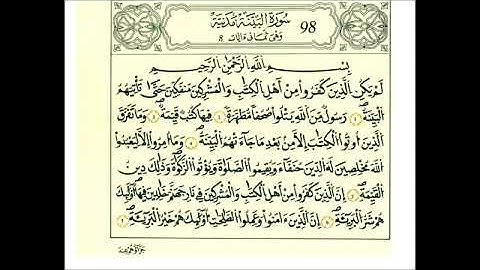 سُورَةُ الْبَيِّنَةِ مَدَنِيَّة 98
وَهِيَ ثَمَانِي ءَايَات 8
بِسْمِ اللَّهِ الرَّحْمَٰنِ الرَّحِيمِ
لَمْ يَكُنِ الَّذِينَ كَفَرُوا مِنَ اهْلِ الْكِتَٰبِ وَالْمُشْرِكِينَ مُنفَكِّينَ حَتَّىٰ تَاتِيَهُمُ
الْبَيِّنَةُ رَسُولٌ مِّنَ اللَّهِ يَتْلُوا صُحُفًا مُّطَهَّرَةً فِيهَا كُتُبٌ قَيِّمَةٌ وَمَا تَفَرَّقَ
الَّذِينَ أُوتُوا الْكِتَٰبَ إِلَّا مِنْ بَعْدِ مَا جَاءَتْهُمُ الْبَيِّنَةُ وَمَا أُمِرُوا إِلَّا لِيَعْبُدُوا
اللَّهَ مُخْلِصِينَ لَهُ الدِّينَ حُنَفَاءَ وَيُقِيمُوا الصَّلَوٰةَ وَيُوتُوا الزَّكَوٰةَ وَذَٰلِكَ دِينُ
الْقَيِّمَةِ إِنَّ الَّذِينَ كَفَرُوا مِنَ اهْلِ الْكِتَٰبِ وَالْمُشْرِكِينَ فِي نَارِ جَهَنَّمَ خَٰلِدِينَ فِيهَا أُوْلَٰئِكَ
هُمْ شَرُّ الْبَرِيئَةِ إِنَّ الَّذِينَ ءَامَنُوا وَعَمِلُوا الصَّٰلِحَٰتِ أُوْلَٰئِكَ هُمْ خَيْرُ الْبَرِيئَةِ
جَزَاؤُهُمْ عِندَ